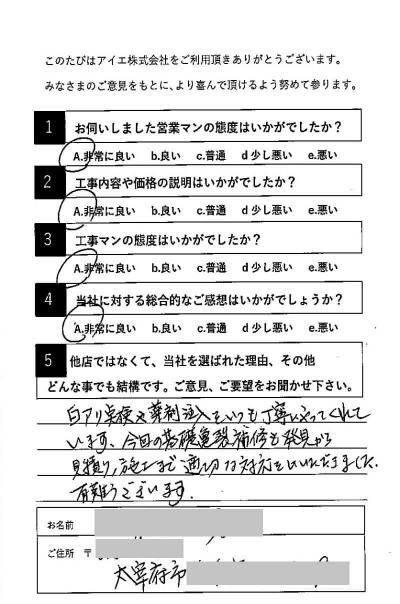 このたびはアイエ株式会社をご利用頂きありがとうございます。
みなさまのご意見をもとに、より喜んで頂けるよう努めて参ります。
1 お伺いしました営業マンの態度はいかがでしたか？
A.非常に良い b.良い c.普通 d 少し悪い e.悪い
2 工事内容や価格の説明はいかがでしたか？
A.非常に良い b.良い c.普通 d 少し悪い e.悪い
3 工事マンの態度はいかがでしたか？
A.非常に良い b.良い c.普通 d 少し悪い e.悪い
4 当社に対する総合的なご感想はいかがでしょうか？
A.非常に良い b.良い c.普通 d 少し悪い e.悪い
5 他店ではなくて、当社を選ばれた理由、その他
どんな事でも結構です。ご意見、ご要望をお聞かせ下さい。
白アリ点検や薬剤注入をいつも丁寧にやってくれて
います、今回の基礎亀裂補修も発見から
見積り、施工まで適切な対応をしていただきました。
有難うございます。
お名前
ご住所 〒
太宰府市